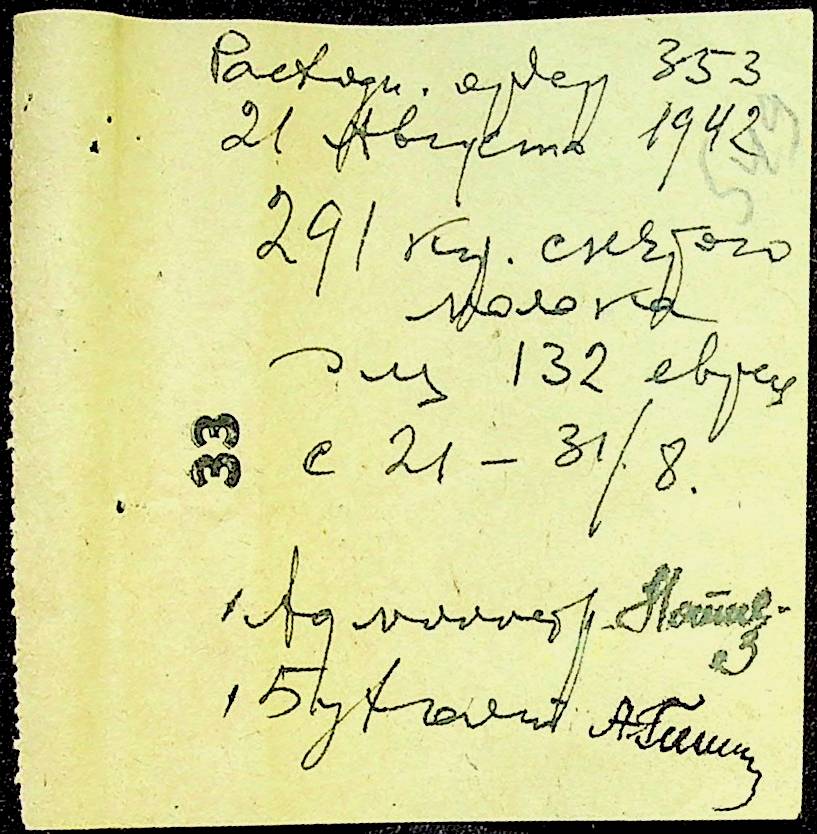 Расходн. ордер 353
21 Августа 1942
549
291 кг. снятого
молока
для 132 евреев
с 21 – 31/8.
33
Администр.
Бухгалт.